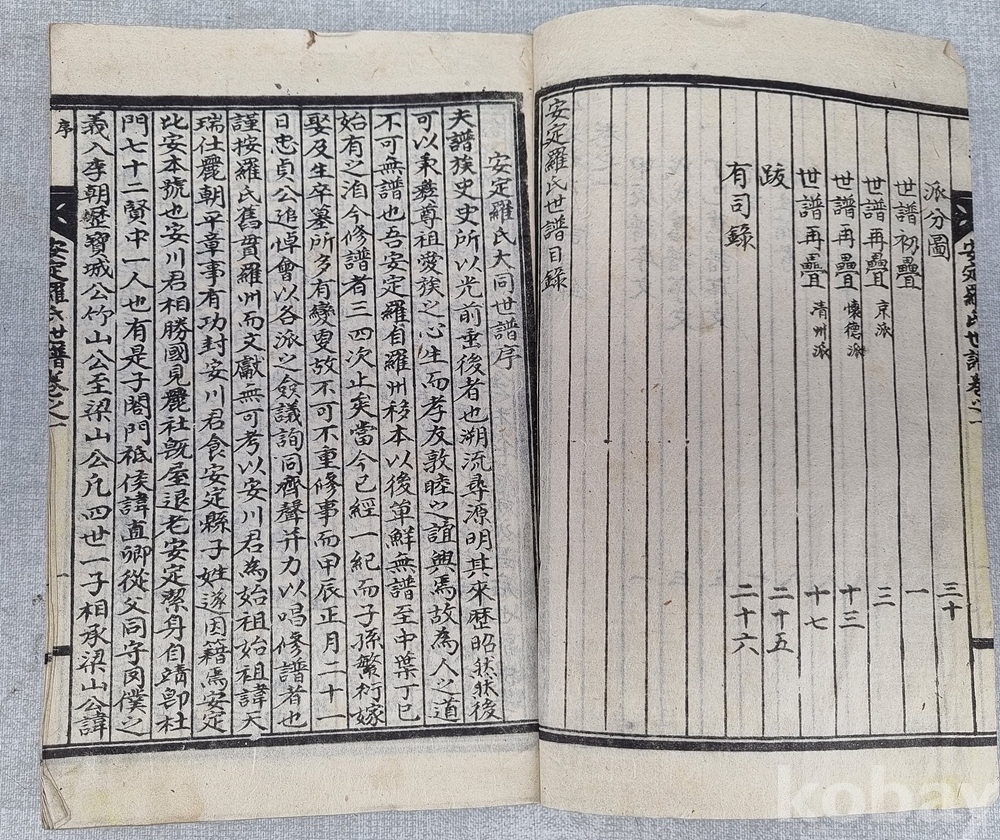 安定羅氏世譜卷之一
派分圖 三十
世譜初疊 一
世譜再疊 京派 三
世譜再疊 懷德派 十三
世譜再疊 清州派 十七
跋 二十五
有司錄 二十六
安定羅氏世譜目錄
安定羅氏大同世譜序
夫譜族史史所以光前垂後者也溯流尋源明其來歷昭然然後
可以秉彝尊祖愛族之心生而孝友敦睦之誼興焉故為人之道
不可無譜也吾安定羅自羅州移本以後單鮮無譜至中葉丁巳
始有之洎今修譜者三四次止矣當今已經一紀而子孫繁衍嫁
娶及生卒墓所多有變更故不可不重修事而甲辰正月二十一
日忠貞公追悼會以各派之僉議詢同齊聲并力以唱修譜者也
謹按羅氏舊貫羅州而文獻無可考以安川君為始祖始祖諱天
瑞仕麗朝平章事有功封安川君食安定縣子姓遂因籍焉安定
比安本號也安川君相勝國見麗社旣屋退老安定潔身自靖卽杜
門七十二賢中一人也有是子閤門祗侯諱直卿從父同守罔僕之
義入李朝歷寶城公竹山公至梁山公凡四世一子相承梁山公諱
序
安定羅氏世譜卷之一
一
kobay